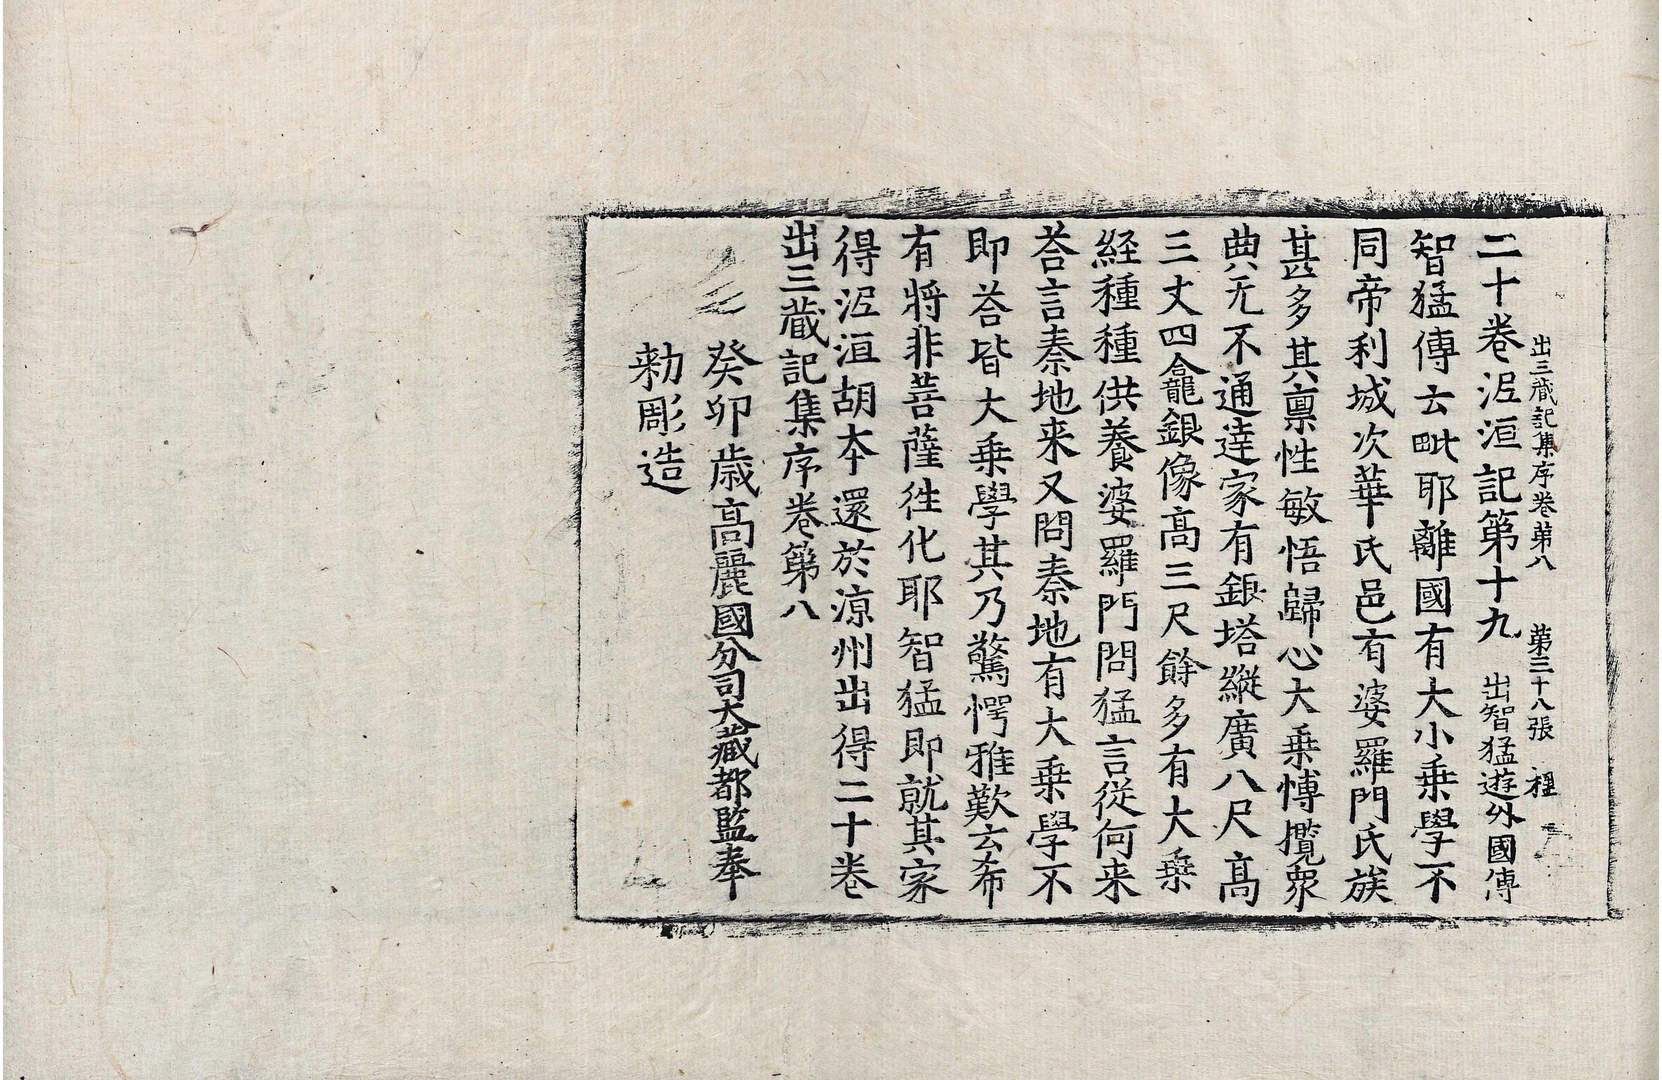 出三藏記集序卷第八 第三十八張 種
二十卷泥洹記第十九 出智猛遊外國傳
智猛傳云毗耶離國有大小乘學不
同帝利城次華氏邑有婆羅門氏族
甚多其稟性敏悟歸心大乘博攬衆
典无不通達家有銀塔縱廣八尺高
三丈四龕銀像高三尺餘多有大乘
経種種供養婆羅門問猛言從何来
荅言秦地来又問秦地有大乘學不
即荅皆大乘學其乃驚愕雅歎云希
有將非菩薩往化耶智猛即就其家
得泥洹胡本還於涼州出得二十卷
出三藏記集序卷第八
癸卯歳高麗國分司大藏都監奉
勑彫造